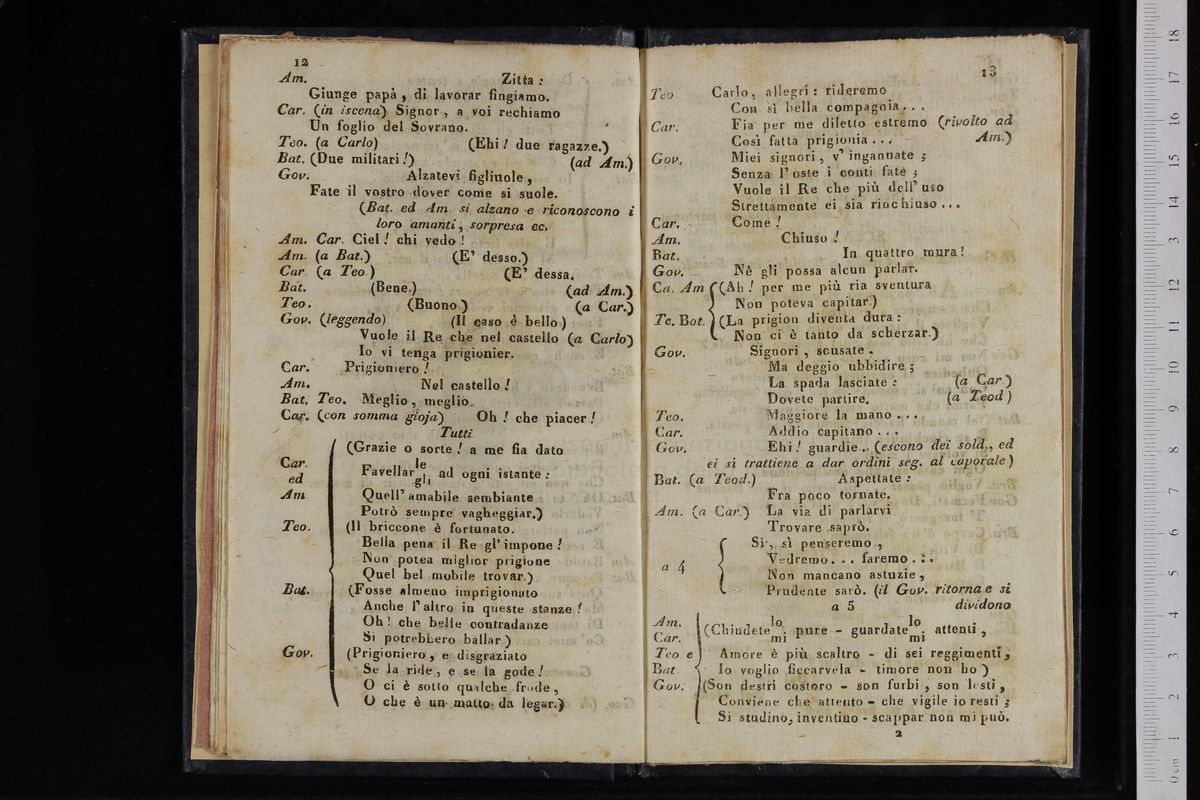 12
Am. Zitta :
Giunge papà , di lavorar fingiamo.
Car. (in iscena) Signor , a voi rechiamo
Un foglio del Sovrano.
Teo. (a Carlo) (Ehi ! due ragazze.)
Bat. (Due militari !) (ad Am.)
Gov. Alzatevi figliuole ,
Fate il vostro dover come si suole.
(Bat. ed Am. si alzano e riconoscono i
loro amanti , sorpresa ec.
Am. Car. Ciel ! chi vedo !
Am. (a Bat.) (E' desso.)
Car (a Teo ) (E' dessa.
Bat. (Bene.) (ad Am.)
Teo. (Buono ) (a Car.)
Gov. (leggendo) (Il caso è bello )
Vuole il Re che nel castello (a Carlo)
Io vi tenga prigionier.
Car. Prigioniero !
Am. Nel castello !
Bat. Teo. Meglio , meglio.
Car. (con somma gioja) Oh ! che piacer !
Tutti
(Grazie o sorte ! a me fia dato
Car. Favellar le ad ogni istante :
ed gli
Am Quell' amabile sembiante
Potrò sempre vagheggiar.)
Teo. (Il briccone è fortunato.
Bella pena il Re gl' impone !
Non potea miglior prigione
Quel bel mobile trovar.)
Bat. (Fosse almeno imprigionato
Anche l' altro in queste stanze !
Oh ! che belle contradanze
Si potrebbero ballar )
Gov. (Prigioniero , e disgraziato
Se la ride , e se la gode !
O ci è sotto qualche frode ,
O che è un matto da legar.)
13
Teo Carlo , allegri : rideremo
Con sì bella compagnia . . .
Car. Fia per me diletto estremo (rivolto ad
Così fatta prigionia . . . Am.)
Gov. Miei signori , v' ingannate ;
Senza l' oste i conti fate ;
Vuole il Re che più dell' uso
Strettamente ei sia rinchiuso . . .
Car. Come !
Am. Chiuso !
Bat. In quattro mura !
Gov. Nè gli possa alcun parlar.
Ca. Am (Ah ! per me più ria sventura
Non poteva capitar.)
Te. Bot. (La prigion diventa dura :
Non ci è tanto da scherzar.)
Gov. Signori , scusate .
Ma deggio ubbidire ;
La spada lasciate : (a Car )
Dovete partire. (a Teod )
Teo. Maggiore la mano . . .
Car. Addio capitano . . .
Gov. Ehi ! guardie .. (escono dei sold., ed
ei si trattiene a dar ordini seg. al caporale )
Bat. (a Teod.) Aspettate :
Fra poco tornate.
Am. (a Car.) La via di parlarvi
Trovare saprò.
Sì , sì penseremo ,
Vedremo . . . faremo . . .
a 4 Non mancano astuzie ,
Prudente sarò. (il Gov. ritorna e si
a 5 dividono
Am. (Chiudete lo pure - guardate lo attenti ,
Car. mi mi
Teo e Amore è più scaltro - di sei reggimenti ,
Bat Io voglio ficcarvela - timore non ho )
Gov. (Son destri costoro - son furbi , son lesti ,
Conviene che attento - che vigile io resti ;
Si studino, inventino - scappar non mi può.
2
0 cm 1 2 3 4 5 6 7 8 9 10 11 12 13 14 15 16 17 18